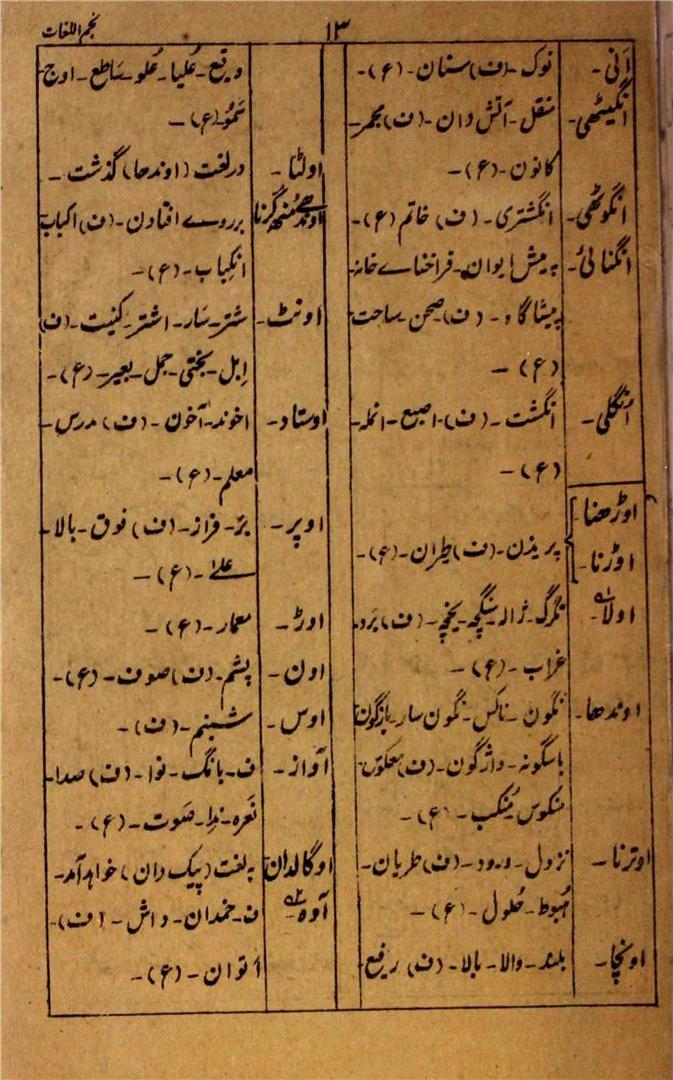 ۱۳
نجم اللغات
اَنی - نوک - (ف) سنان - (ع) -
انگیٹھی - منقل - آتش دان - (ف) مجمر -
کانون - (ع) -
انگوٹھی - انگشتری - (ف) خاتم (ع) -
انگنائی - پیش ایوان - فراخنائے خانہ
پیشگاہ - (ف) صحن - ساحت
(ع) -
اُنگلی - انگشت - (ف) اصبع - انملہ -
(ع) -
اوڑھنا -
اوڑنا - پریدن - (ف) طیران - (ع) -
اولا - تگرگ - ژالہ - سنگچہ - یخچہ - (ف) برد
غراب - (ع) -
اوندھا - نگون - ناکس - نگون سار - بازگون
باسگونہ - واژگون - (ف) معکوس
منکوس - مُنکب - (ع) -
اوترنا - نزول - ورود - (ف) طریان -
ہُبوط - حُلول - (ع) -
اونچا - بلند - والا - بالا - (ف) ریفع -
وقیع - عُلیا - عُلو - سَاطع - اوج -
سَمُوّ (ع) -
اولٹا - درلغت (اوندھا) گذشت -
اوندھے مُنھ گرنا برروے افتادن - (ف) اکباب
انکِباب - (ع) -
اونٹ - شتر - سَار - اشتر - (ف)
اِبل - بختی - جمل - بعیر - (ع) -
اوستاد - اخوند - آخون - (ف) مدرس -
معلم - (ع) -
اوپر - بَر - فراز - (ف) فوق - بالا -
علےٰ - (ع) -
اوڑ - معمار - (ع) -
اون - پشم - (ف) صوف - (ع) -
اوس - شبنم - (ف) -
آواز - ف - بانگ - نوا - (ف) صدا -
نعرہ - ندا - صَوت - (ع) -
اوگالدان بہ لغت (پیک دان) خواہد آمد -
آوہ - ف - خمدان - داش - (ف) -
اَتوان - (ع) -